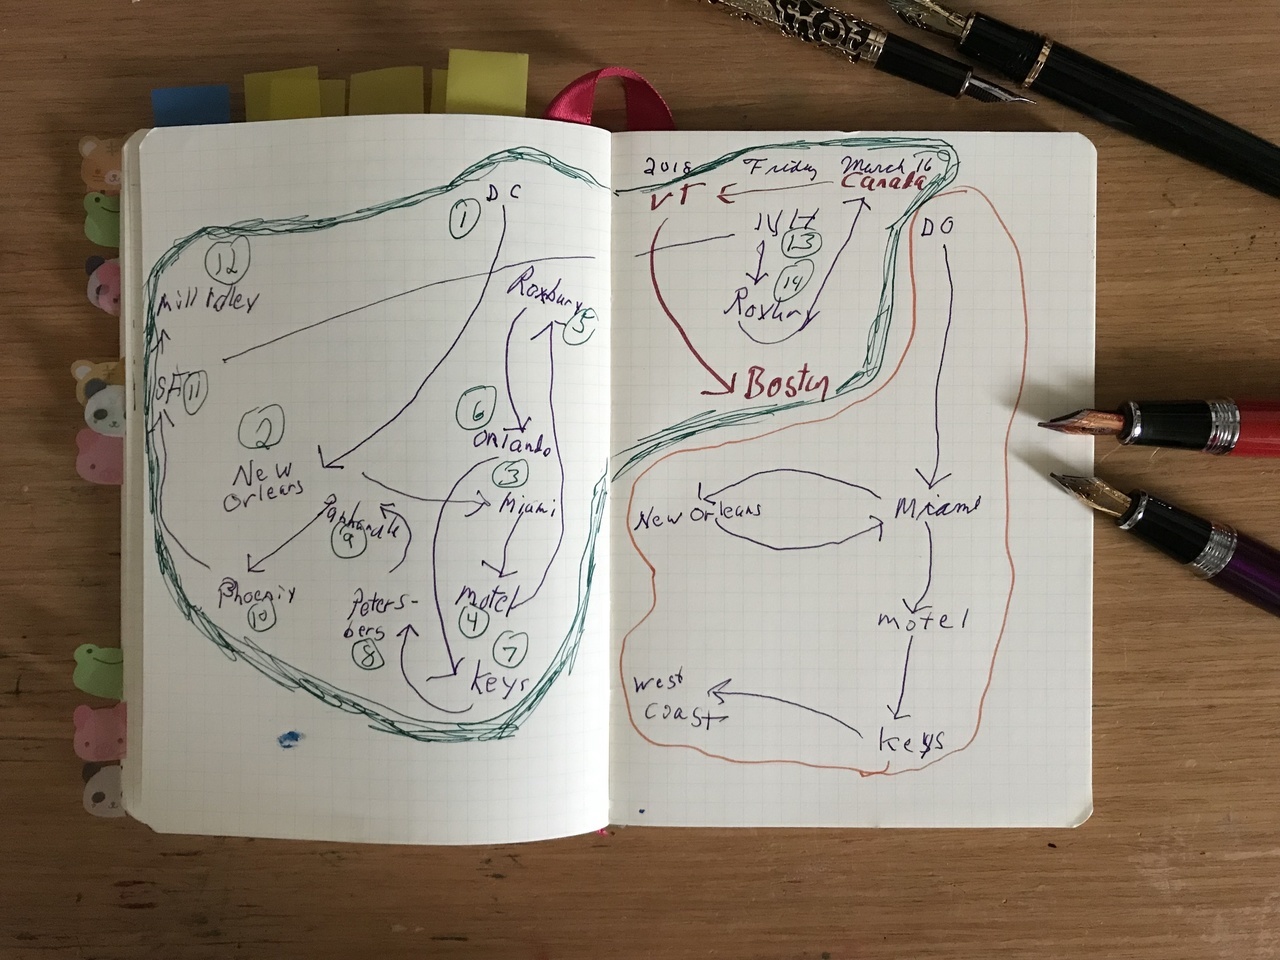 DC
1
12
Roxbury
5
SF 11
6
2
Orlando
New
Orleans
3
Miami
Panhandle
9
Phoenix
10
Peters-
berg
8
Motel
4
7
Keys
2018 Friday March 16
Canada
VT
13
14
Roxbury
Boston
DC
New Orleans
Miami
motel
West
Coast
Keys